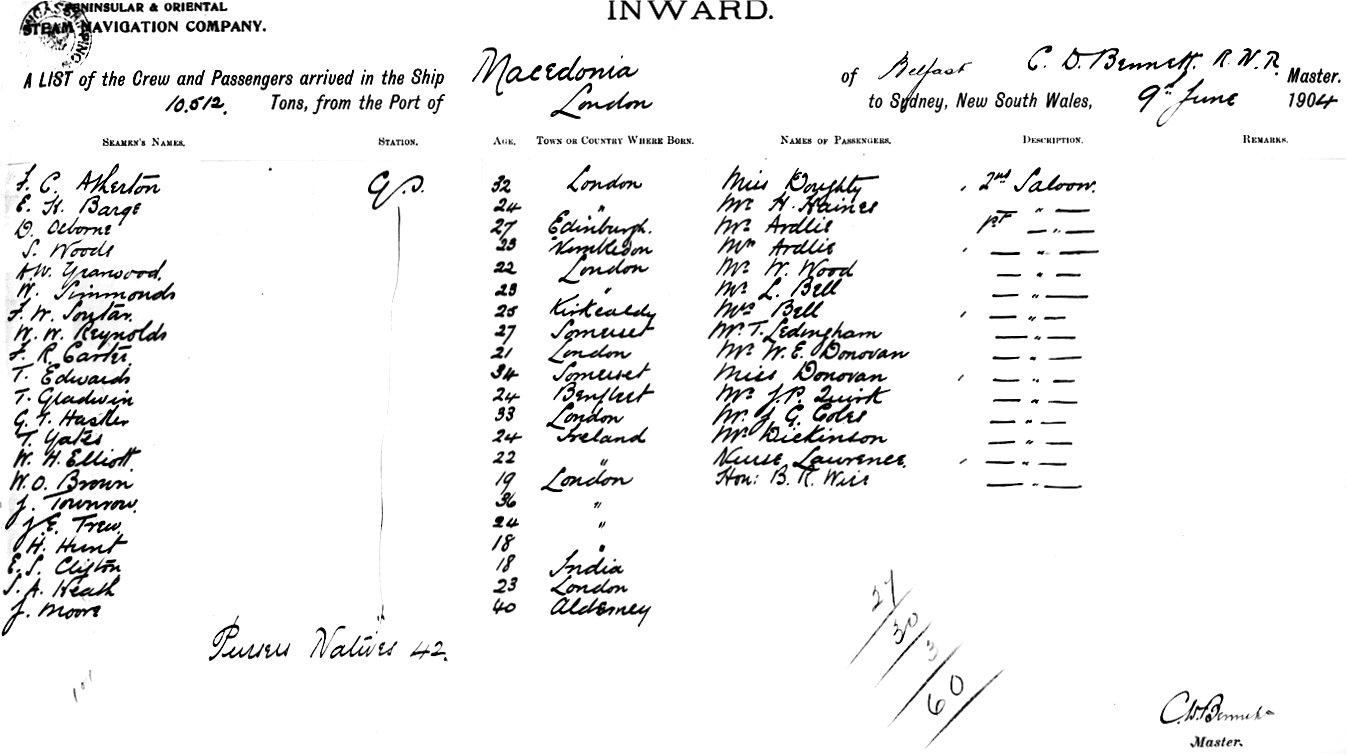 PENINSULAR & ORIENTAL
STEAM NAVIGATION COMPANY.
INWARD.
A LIST of the Crew and Passengers arrived in the Ship Macedonia of Belfast C. D. Bennett, R.N.R. Master.
10,512 Tons, from the Port of London to Sydney, New South Wales, 9th June 1904
SEAMEN'S NAMES. STATION. AGE. TOWN OR COUNTRY WHERE BORN. NAMES OF PASSENGERS. DESCRIPTION. REMARKS.
F. C. Atherton G.S. 32 London Miss Doughty 2nd Saloon.
E. H. Barge 24 " Mr H. Haines — " —
D. Osborne 27 Edinburgh. Mr Ardlie 1st — " —
S. Woods 23 Wimbledon Mrs Ardlie — " —
A.W. Yarwood 22 London Mr W. Wood — " —
W. Simmonds 23 " Mr L. Bell — " —
F. W. Soutar. 25 Kirkcaldy Mrs Bell — " —
W. W. Reynolds 27 Somerset Mr T. Ledingham — " —
F. R. Carter 21 London Mr W. E. Donovan — " —
T. Edwards 34 Somerset Miss Donovan — " —
T. Gladwin 24 Benfleet Mr J. P. Quirk — " —
G. T. Hasler 33 London Mr J. G. Coles — " —
T. Yates 24 Ireland Mr Dickinson — " —
W. H. Elliott 22 " Nurse Lawrence — " —
W. O. Brown 19 London Hon: B. R. Wise — " —
J. Townrow 36 "
J. E. Trew 24 "
H. Hunt 18 "
E. S. Clifton 18 India
S. A. Heath 23 London
J. Moore 40 Alderney
Pursers Natives 42.
27
30
3
60
C.D. Bennett
Master.